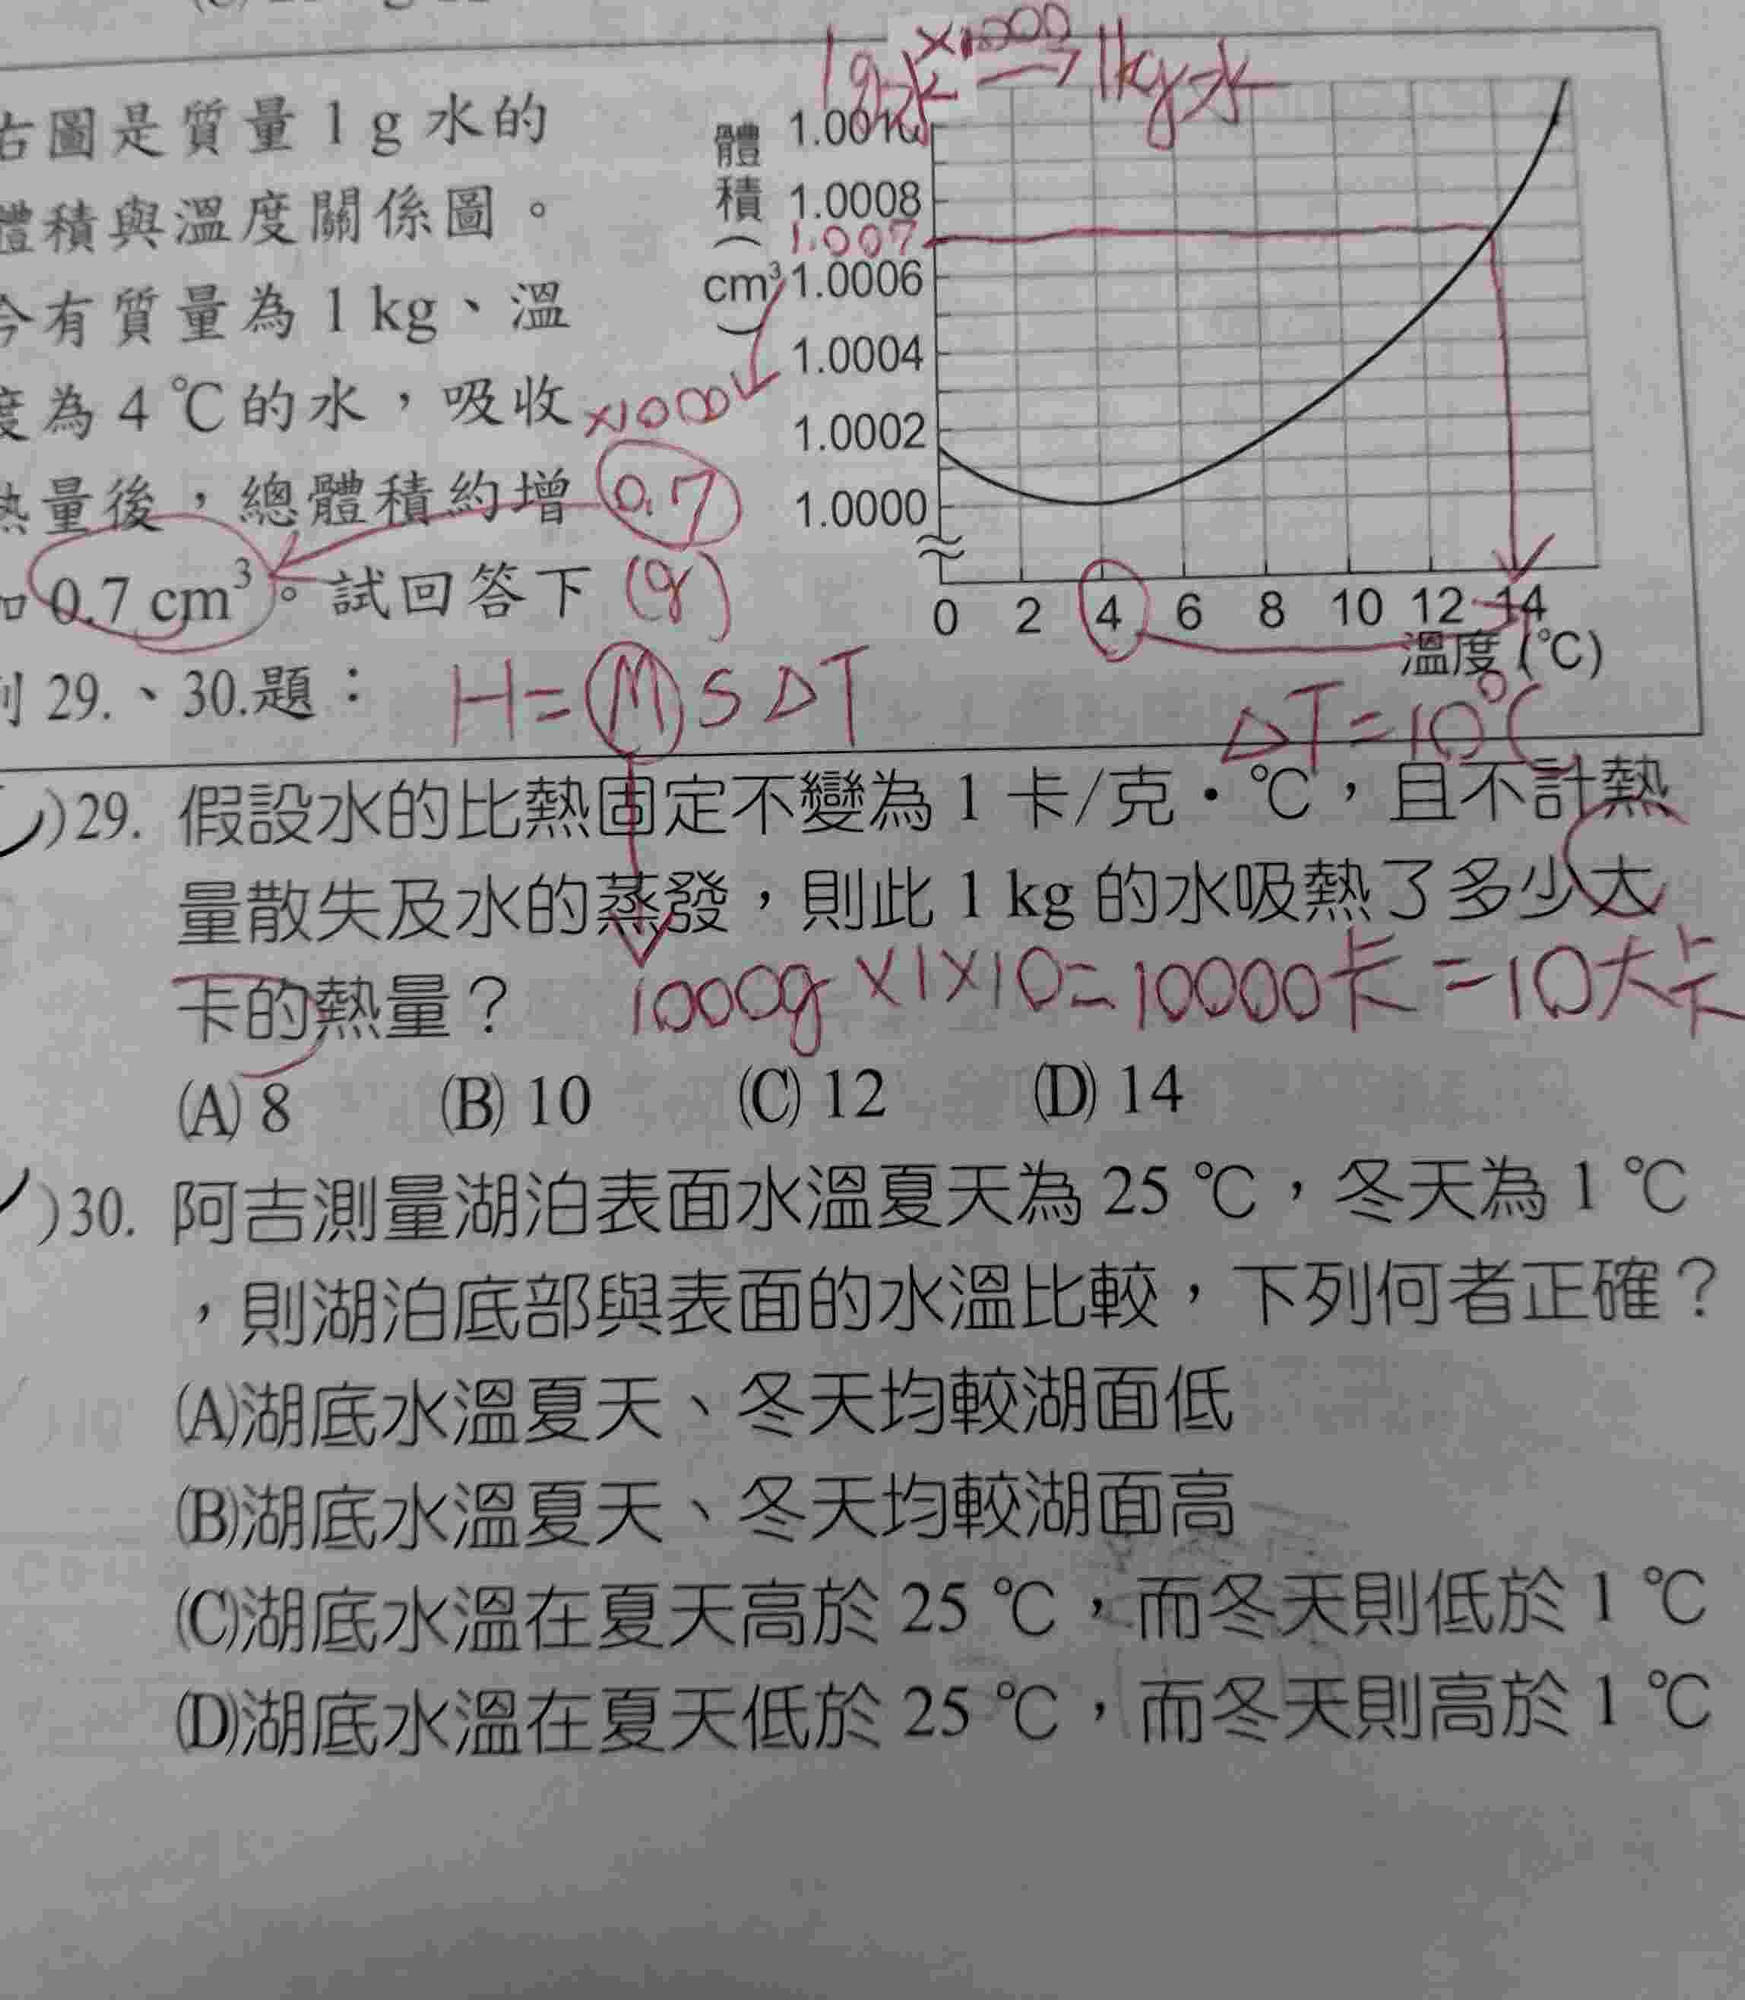 1g水 ×1000 → 1kg水
右圖是質量 1 g 水的
體積與溫度關係圖。
今有質量為 1 kg、溫
度為 4 ℃的水，吸收
熱量後，總體積約增
加 0.7 cm³。試回答下
列 29.、30.題：
體積(cm³)
1.0008
1.007
1.0006
1.0004
1.0002
1.0000
×1000
0.7
0 2 4 6 8 10 12 14
溫度(℃)
H = M S ΔT
ΔT = 10℃
)29. 假設水的比熱固定不變為 1 卡/克・℃，且不計熱
量散失及水的蒸發，則此 1 kg 的水吸熱了多少大
卡的熱量？
1000g × 1 × 10 = 10000卡 = 10大卡
(A) 8 (B) 10 (C) 12 (D) 14
)30. 阿吉測量湖泊表面水溫夏天為 25 ℃，冬天為 1 ℃
，則湖泊底部與表面的水溫比較，下列何者正確？
(A)湖底水溫夏天、冬天均較湖面低
(B)湖底水溫夏天、冬天均較湖面高
(C)湖底水溫在夏天高於 25 ℃，而冬天則低於 1 ℃
(D)湖底水溫在夏天低於 25 ℃，而冬天則高於 1 ℃